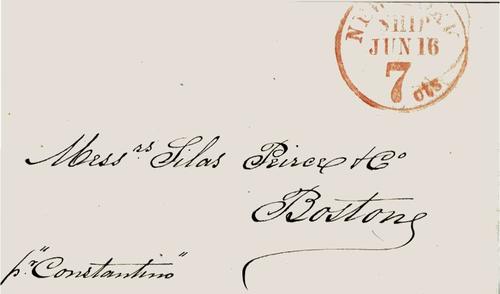 NEW YORK
SHIP
JUN 16
7 cts
Messrs Silas Peirce & Co
Boston
pr "Constantino"